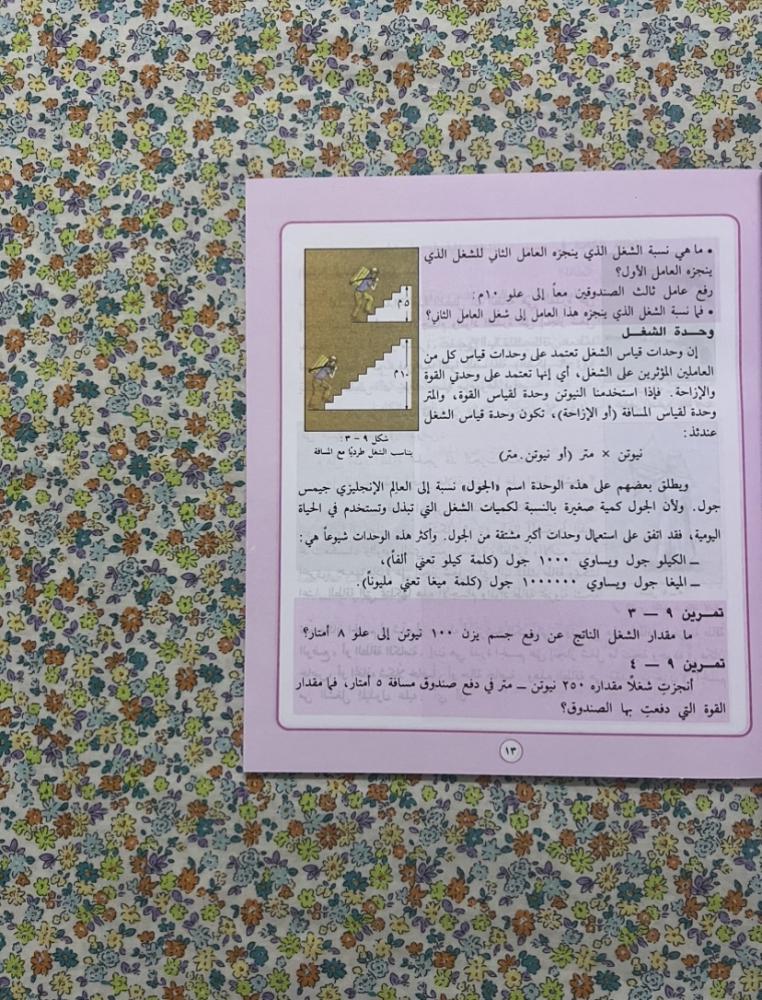 • ما هي نسبة الشغل الذي ينجزه العامل الثاني للشغل الذي
ينجزه العامل الأول؟
رفع عامل ثالث الصندوقين معاً إلى علو ١٠م:
• فما نسبة الشغل الذي ينجزه هذا العامل إلى شغل العامل الثاني؟
وحدة الشغل
إن وحدات قياس الشغل تعتمد على وحدات قياس كل من
العاملين المؤثرين على الشغل، أي إنها تعتمد على وحدتي القوة
والإزاحة. فإذا استخدمنا النيوتن وحدة لقياس القوة، والمتر
وحدة لقياس المسافة (أو الإزاحة)، تكون وحدة قياس الشغل
عندئذ:
٥م
١٠م
شكل ٩ – ٣:
يتناسب الشغل طرديًا مع المسافة
نيوتن × متر (أو نيوتن.متر)
ويطلق بعضهم على هذه الوحدة اسم «الجول» نسبة إلى العالِم الإنجليزي جيمس
جول. ولأن الجول كمية صغيرة بالنسبة لكميات الشغل التي تبذل وتستخدم في الحياة
اليومية، فقد اتفق على استعمال وحدات أكبر مشتقة من الجول. وأكثر هذه الوحدات شيوعاً هي:
ــ الكيلو جول ويساوي ١٠٠٠ جول (كلمة كيلو تعني ألفاً)،
ــ الميغا جول ويساوي ١٠٠٠٠٠٠ جول (كلمة ميغا تعني مليوناً).
تمرين ٩ – ٣
ما مقدار الشغل الناتج عن رفع جسم يزن ١٠٠ نيوتن إلى علو ٨ أمتار؟
تمرين ٩ – ٤
أنجزتِ شغلًا مقداره ٢٥٠ نيوتن ــ متر في دفع صندوق مسافة ٥ أمتار، فما مقدار
القوة التي دفعتِ بها الصندوق؟
١٣